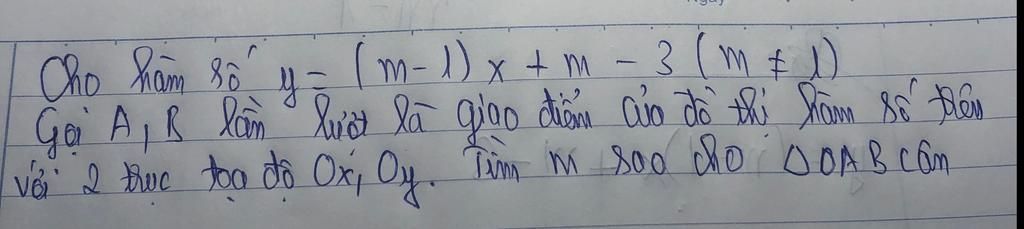 Cho hàm số y = (m-1) x + m - 3 (m ≠ 1)
Gọi A, B lần lượt là giao điểm của đồ thị hàm số trên
với 2 trục tọa độ Ox, Oy. Tìm m sao cho △OAB cân